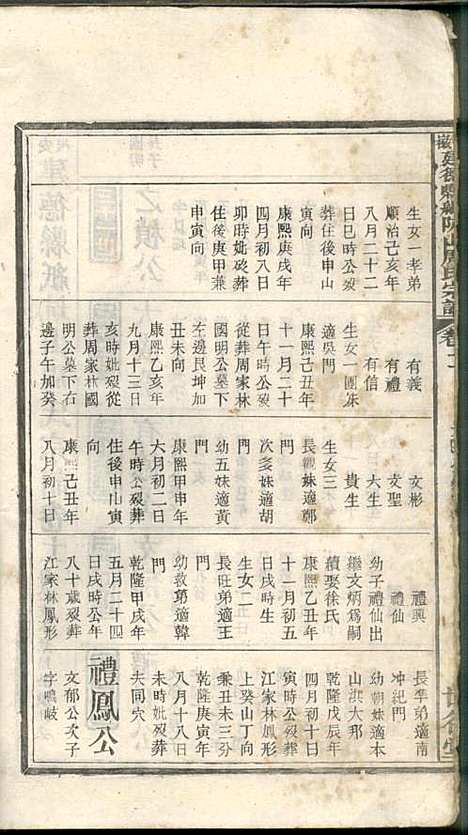 生女一孝弟
順治己亥年
八月二十二
日巳時公歿
葬住後申山
寅向
康熙庚戌年
四月初八日
卯時妣歿葬
住後庚甲兼
申寅向
有義
有禮
有信
生女一團妹
適吳門
康熙己丑年
十一月二十
日午時公歿
從葬周家林
國明公墓下
左邊艮坤加
丑未向
康熙乙亥年
九月十三日
亥時妣歿從
葬周家林國
明公墓下右
邊子午加癸
文彬
文聖
大生
貴生
生女三
長觀妹適鄭
門
次多妹適胡
門
幼五妹適黃
門
康熙甲申年
六月初二日
午時公歿葬
住後申山寅
向
康熙己丑年
八月初十日
禮興
禮仙
幼子禮仙出
繼文炳爲嗣
續娶徐氏
康熙乙丑年
十一月初五
日戌時生
生女二
長旺弟適王
門
幼敎弟適韓
門
乾隆甲戌年
五月二十四
日戌時公年
八十歲歿葬
江家林鳳形
長準弟適南
冲紀門
幼朝妹適本
山洪大邦
乾隆戊辰年
四月初十日
寅時公歿葬
江家林鳳形
上癸山丁向
兼丑未三分
乾隆庚寅年
八月十八日
未時妣歿葬
夫同穴
禮鳳公
文郁公次子
字鳴岐